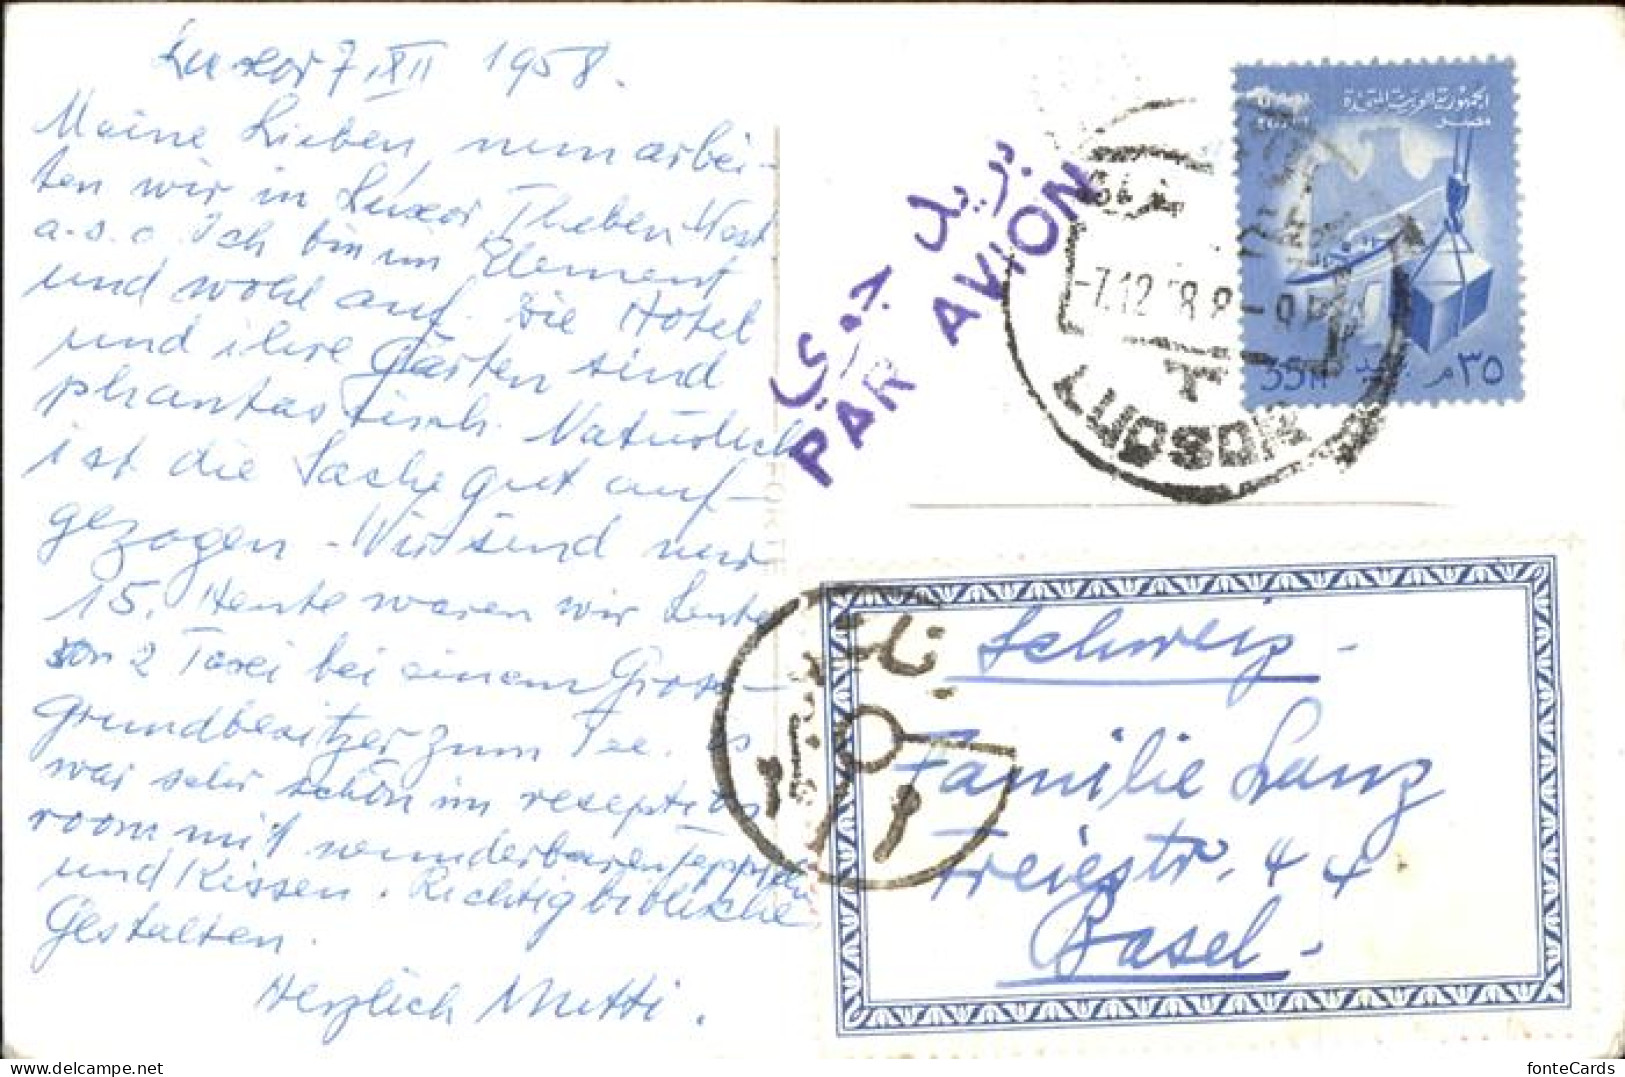 Luxor 7. XII 1958.
Meine Lieben, nun arbei-
ten wir in Luxor, Theben West
a.s.o. Ich bin im Element
und wohl auf. Die Hotel
und ihre Gärten sind
phantastisch. Natürlich
ist die Sache gut auf-
gezogen - Wir sind nur
15. Heute waren wir Leute
von 2 Taxei bei einem Gross-
grundbesitzer zum Tee. Es
war sehr schön im reseptions
room mit wunderbaren Teppichen
und Kissen. Richtig biblische
Gestalten.
Herzlich Mutti.
بريد جوي
PAR AVION
الجمهورية العربية المتحدة
مصر
35M
٣٥ م
-7.12.58 8-
Schweiz -
Familie Lanz
Freiestr. 44
Basel -
fonteCards